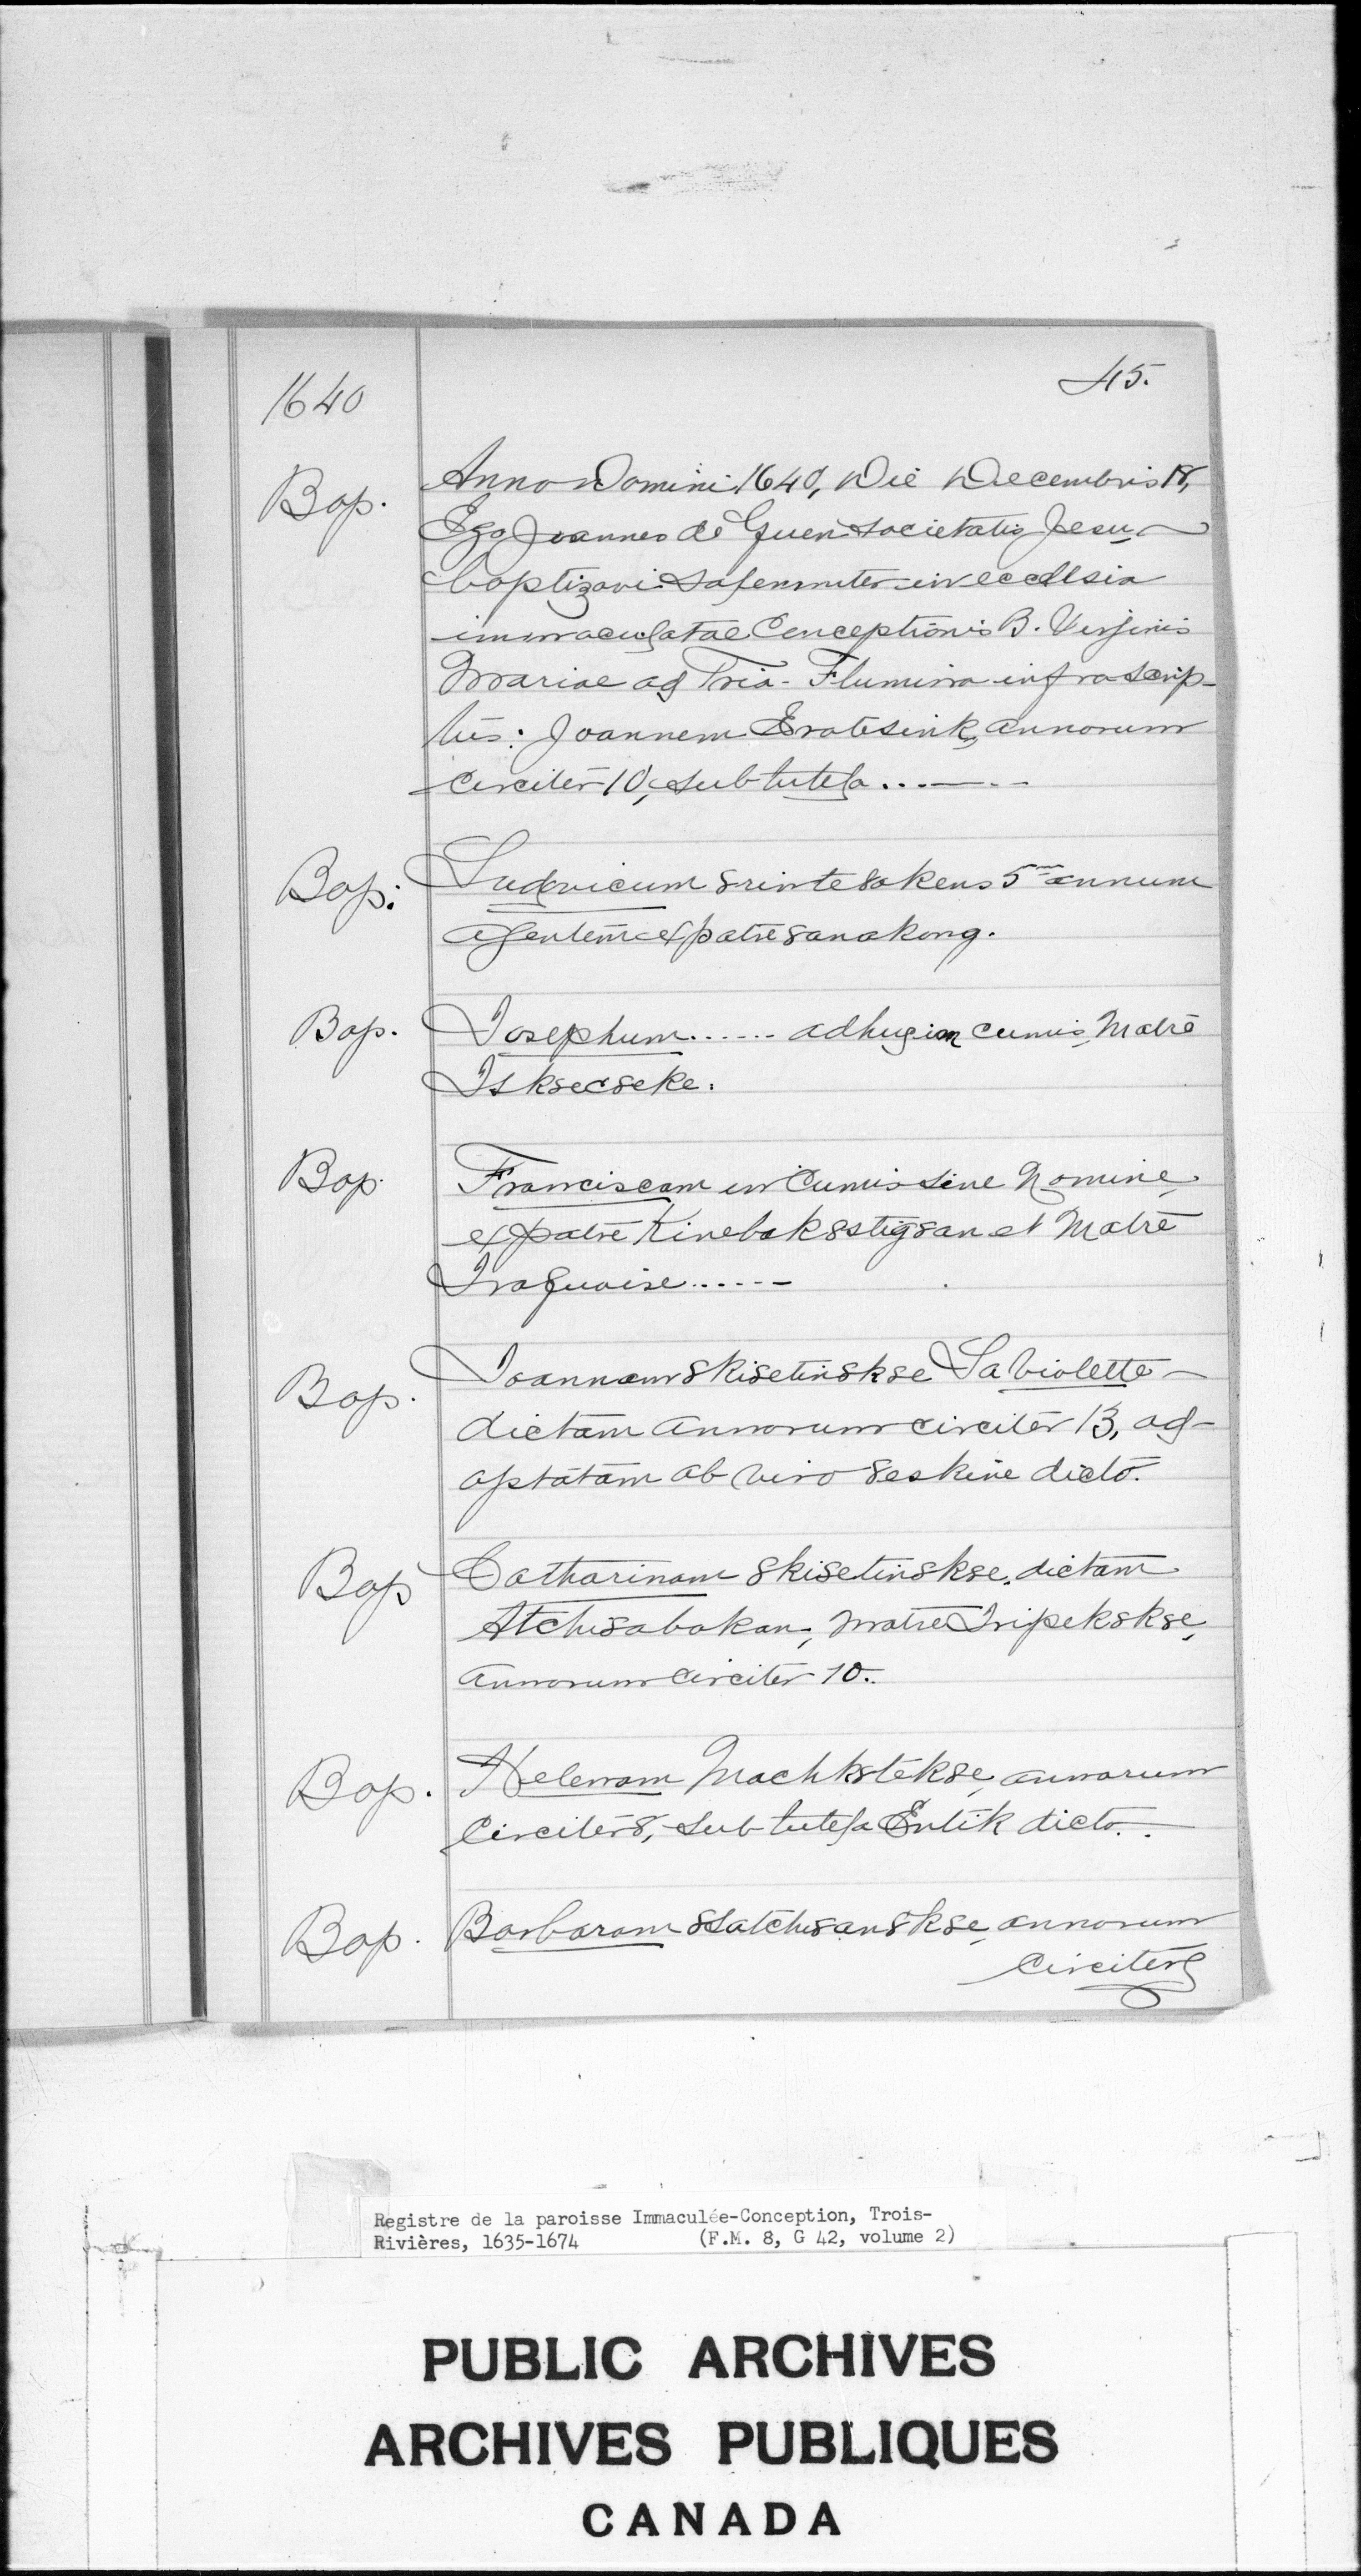 1640
45.
Bap. Anno Domini 1640, Die Decembris 18,
Ego Joannes de Quen Societatis Jesu
baptizavi solemniter in ecclesia
immaculatae Conceptionis B. Virginis
Mariae ad Tria-Flumina infrascrip-
tis: Joannem annorum
circiter 10, sub tutela........
Bap: Ludovicum 8rinte8akens 5um annum
agentem ex patre 8anakong.
Bap. Josephum...... adhuc in cunis, Matre
Isk8ec8eke.
Bap. Franciscam in cunis sine Nomine,
ex patre Kinebak8stig8an et Matre
Iroquoise......
Bap. Joannam 8ki8etin8k8e La Violette
dictam annorum circiter 13, ad-
optatam ab viro 8eskine dicto.
Bap Catharinam 8ki8etin8k8e, dictam
Atchi8abakan, matre Iripek8k8e,
annorum circiter 10.
Bap. Helenam Machk8tek8e, annorum
circiter 8, sub tutela dicto.
Bap. Barbaram 8satchi8an8k8e, annorum
circiter
Registre de la paroisse Immaculée-Conception, Trois-
Rivières, 1635-1674 (F.M. 8, G 42, volume 2)
PUBLIC ARCHIVES
ARCHIVES PUBLIQUES
CANADA